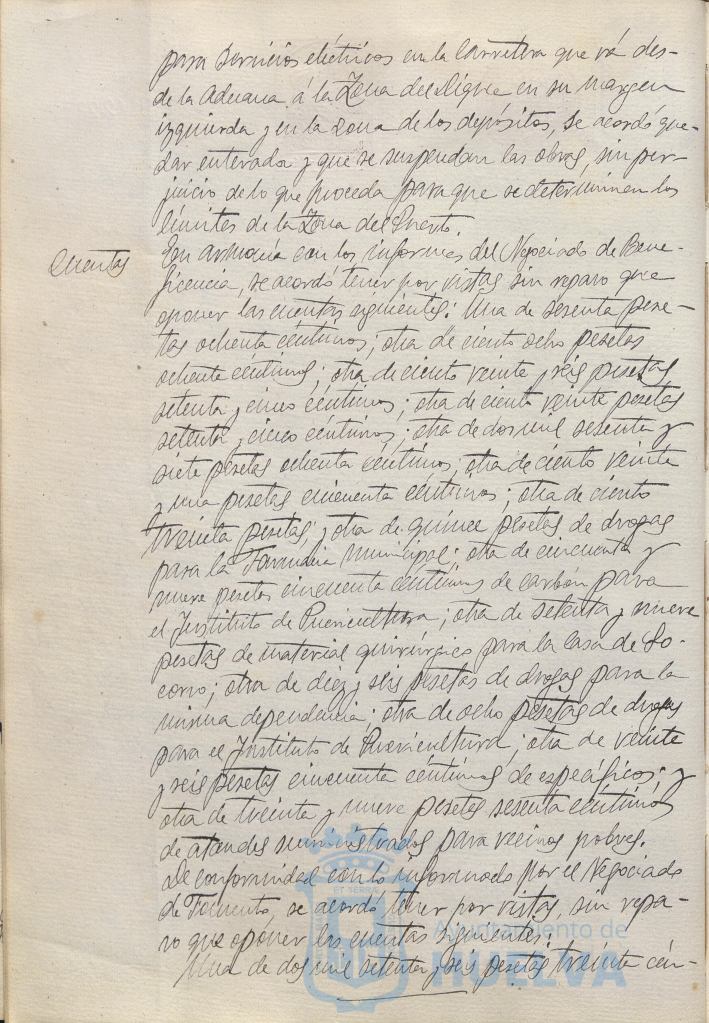 para servicios eléctricos en la Carretera que vá des-
de la Aduana á la Zona del Dique en su margen
izquierda y en la zona de los depósitos, se acordó que-
dar enterada y que se suspendan las obras, sin per-
juicio de lo que proceda para que se determinen los
límites de la Zona del Puerto.
Cuentas
En armonía con los informes del Negociado de Bene-
ficencia, se acordó tener por vistas sin reparo que
oponer las cuentas siguientes: Una de sesenta pese-
tas ochenta céntimos; otra de ciento ocho pesetas
ochenta céntimos; otra de ciento veinte y seis pesetas
setenta y cinco céntimos; otra de ciento veinte pesetas
setenta y cinco céntimos; otra de dos mil sesenta y
siete pesetas ochenta céntimos; otra de ciento veinte
y una pesetas cincuenta céntimos; otra de ciento
treinta pesetas; y otra de quince pesetas de drogas
para la Farmacia Municipal; otra de cincuenta y
nueve pesetas cincuenta céntimos de carbón para
el Instituto de Puericultura; otra de setenta y nueve
pesetas de material quirúrgico para la Casa de So-
corro; otra de diez y seis pesetas de drogas para la
misma dependencia; otra de ocho pesetas de drogas
para el Instituto de Puericultura; otra de veinte
y seis pesetas cincuenta céntimos de específicos; y
otra de treinta y nueve pesetas sesenta céntimos
de ataudes suministrados para vecinos pobres.
De conformidad con lo informado por el Negociado
de Fomento, se acordó tener por vistas, sin repa-
ro que oponer las cuentas siguientes:
Una de dos mil setenta y seis pesetas treinta cén-
Ayuntamiento de
HUELVA